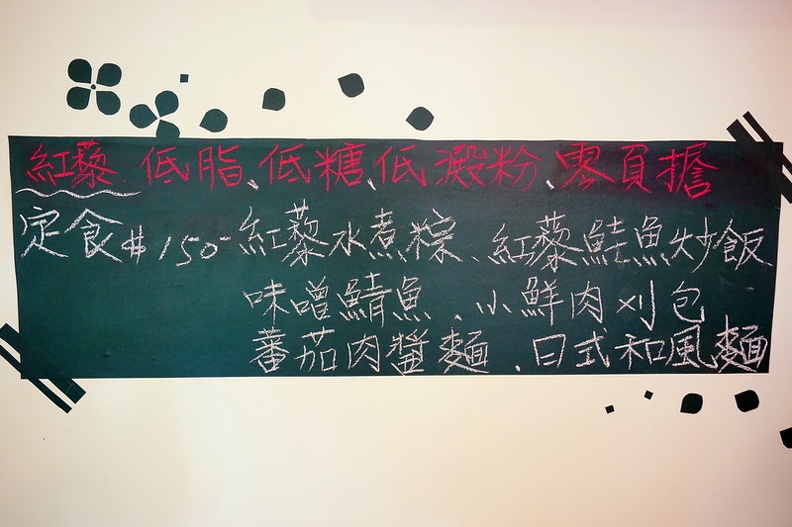 紅藜.低脂、低糖、低澱粉、零負擔
定食$150-紅藜水煮粽、紅藜鮭魚炒飯
味噌鯖魚、小鮮肉刈包
蕃茄肉醬麵、日式和風麵